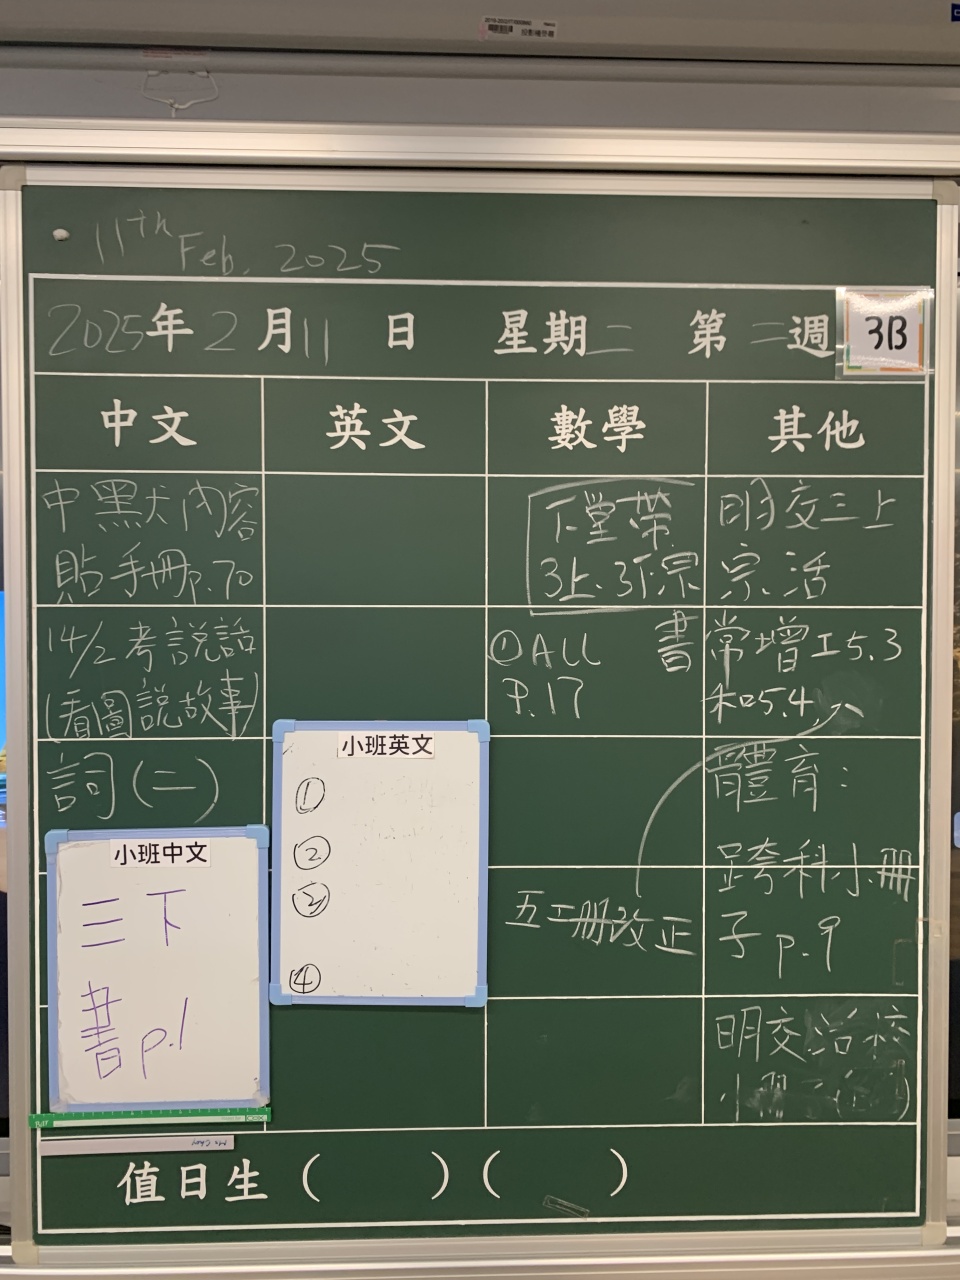 11th Feb. 2025
2025年2月11日 星期二 第二週
3B
中文 英文 數學 其他
中默犬內容
貼手冊p.70
14/2 考說話
(看圖說故事)
詞(二)
小班中文
三下
書p.1
小班英文
①
②
③
④
下堂帶
3上、3下宗
①ALL 書
P.17
五工冊改正
明交三上
宗活
常增工5.3
和5.4
體育:
跨科小冊
子p.9
明交活校
值日生( )( )